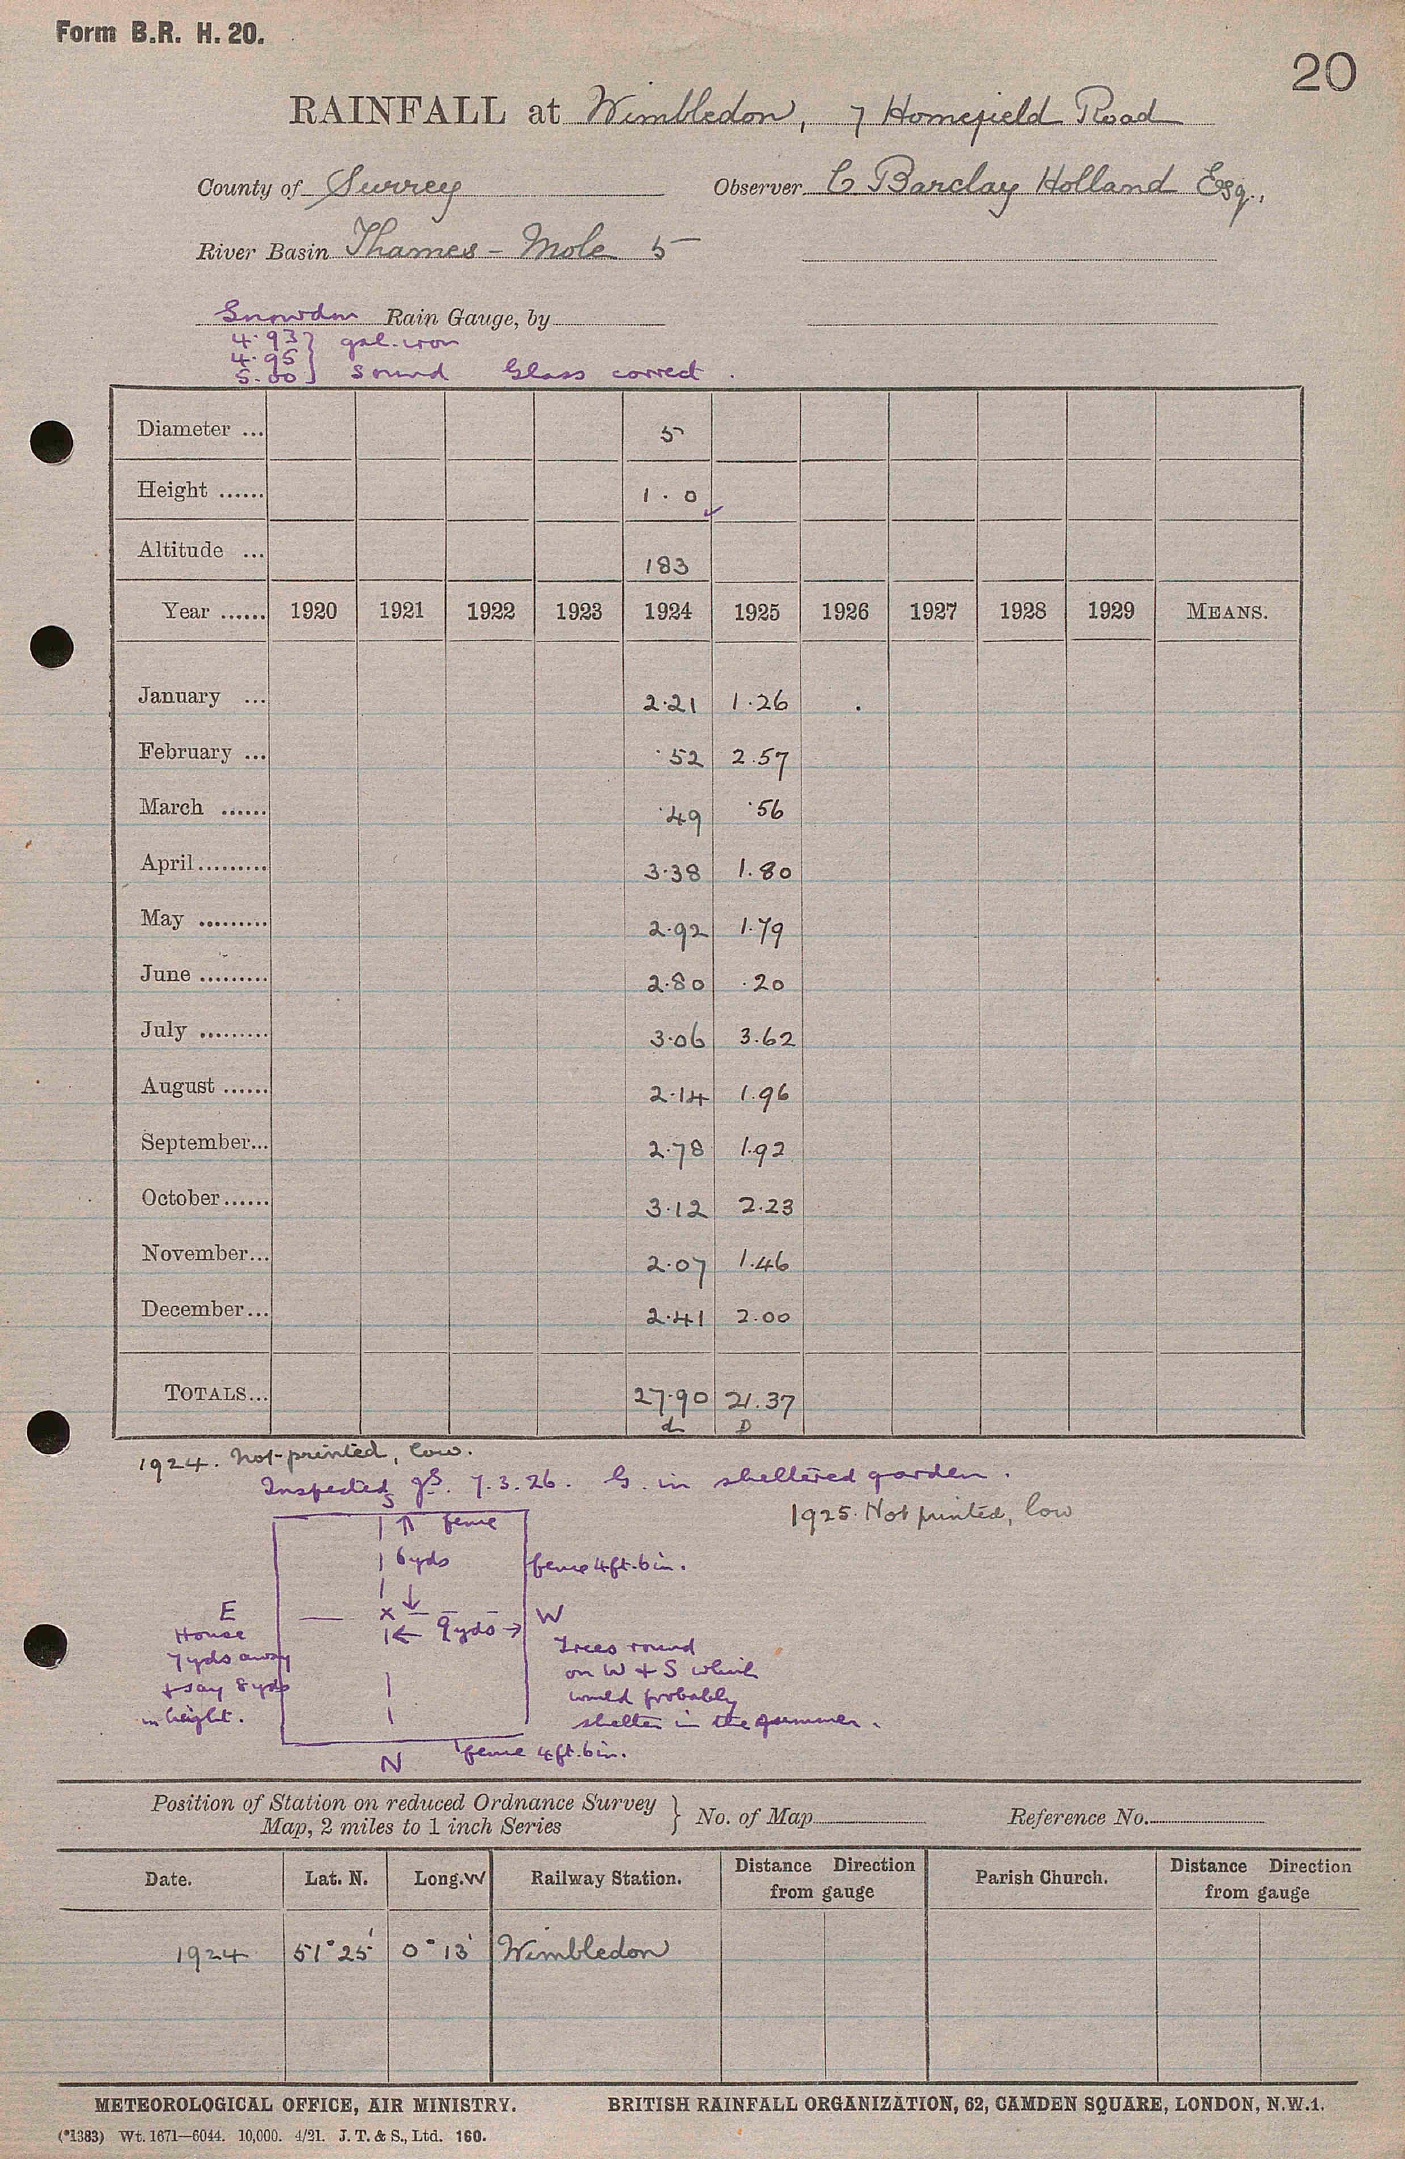 Form B.R. H. 20.
20
RAINFALL at Wimbledon, 7 Homefield Road
County of Surrey Observer C Barclay Holland Esq.,
River Basin Thames - Mole 5
Snowdon Rain Gauge, by
4.93 } gal. iron
4.95
5.00 } sound Glass correct.
Diameter ... 5
Height ...... 1.0
Altitude ... 183
Year ...... 1920 1921 1922 1923 1924 1925 1926 1927 1928 1929 MEANS.
January ... 2.21 1.26
February ... .52 2.57
March ...... .49 .56
April......... 3.38 1.80
May ......... 2.92 1.79
June ......... 2.80 .20
July ......... 3.06 3.62
August ...... 2.14 1.96
September... 2.78 1.92
October...... 3.12 2.23
November... 2.07 1.46
December... 2.41 2.00
TOTALS... 27.90 21.37
d D
1924. Not printed, low.
Inspected 7.3.26. G. in sheltered garden.
1925. Not printed, low
S
↑ fence
6yds fence 4ft. 6in.
↓
E x W
← 9yds →
House
7yds away
+ say 8yds
in height.
Trees round
on W + S which
would probably
shelter in the summer.
N fence 4ft. 6in.
Position of Station on reduced Ordnance Survey
Map, 2 miles to 1 inch Series } No. of Map Reference No.
Date. Lat. N. Long. W Railway Station. Distance Direction from gauge Parish Church. Distance Direction from gauge
1924 51° 25' 0° 13' Wimbledon
METEOROLOGICAL OFFICE, AIR MINISTRY. BRITISH RAINFALL ORGANIZATION, 62, CAMDEN SQUARE, LONDON, N.W.1.
(*1383) Wt. 1671—6044. 10,000. 4/21. J. T. & S., Ltd. 160.